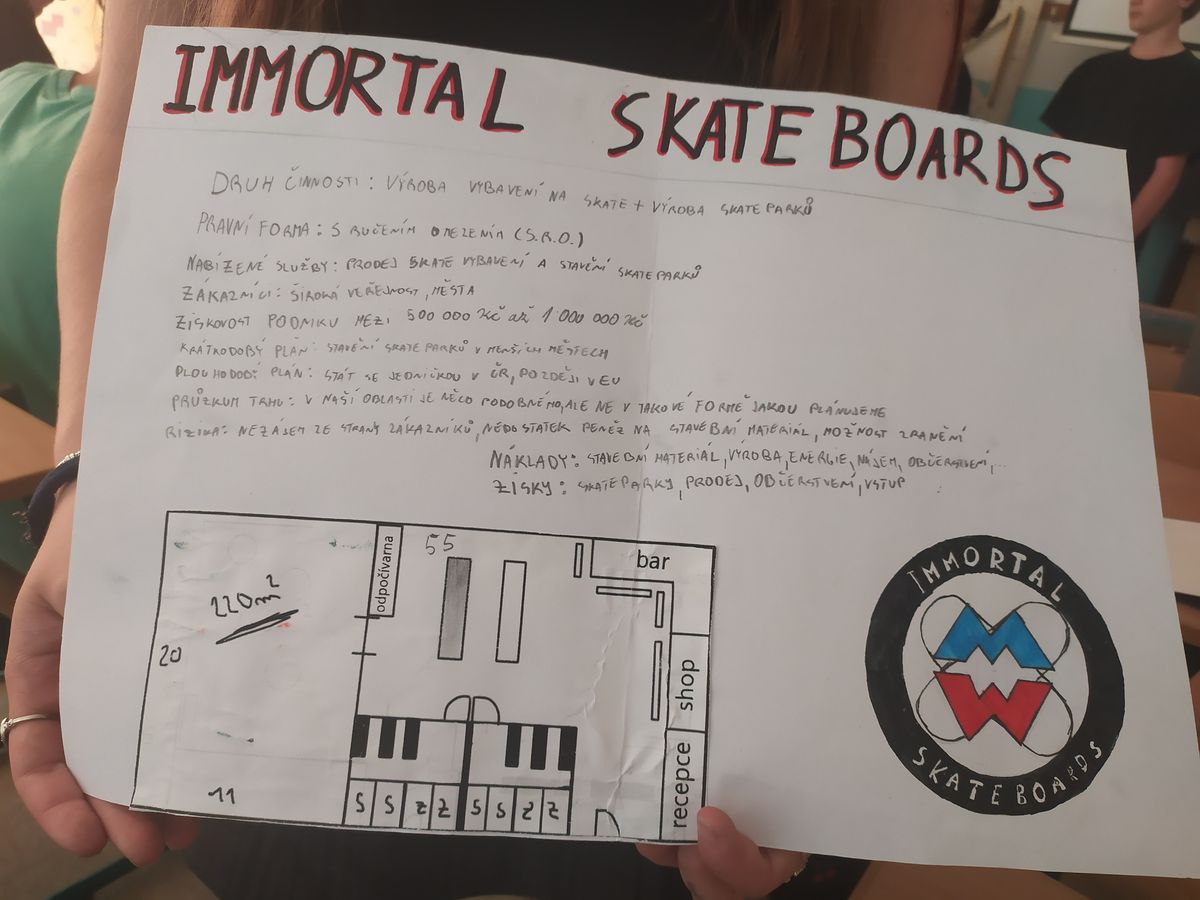 IMMORTAL SKATEBOARDS
DRUH ČINNOSTI: VÝROBA VYBAVENÍ NA SKATE + VÝROBA SKATEPARKŮ
PRAVNÍ FORMA: S RUČENÍM OMEZENÍM (S.R.O.)
NABÍZENÉ SLUŽBY: PRODEJ SKATE VYBAVENÍ A STAVĚNÍ SKATEPARKŮ
ZÁKAZNÍCI: ŠIROKÁ VEŘEJNOST, MĚSTA
ZISKOVOST PODNIKU MEZI 500 000 Kč až 1 000 000 Kč
KRÁTKODOBÝ PLÁN: STAVĚNÍ SKATEPARKŮ V MENŠÍCH MĚSTECH
DLOUHODOBÍ PLÁN: STÁT SE JEDNIČKOU V ČR, POZDĚJI V EU
PRŮZKUM TRHU: V NAŠÍ OBLASTI JE NĚCO PODOBNÉHO, ALE NE V TAKOVÉ FORMĚ JAKOU PLÁNUJEME
RIZIKA: NEZÁJEM ZE STRANY ZÁKAZNÍKŮ, NEDOSTATEK PENĚZ NA STAVEBNÍ MATERIÁL, MOŽNOST ZRANĚNÍ
NÁKLADY: STAVEBNÍ MATERIÁL, VÝROBA, ENERGIE, NÁJEM, OBČERSTVENÍ,...
ZISKY: SKATEPARKY, PRODEJ, OBČERSTVENÍ, VSTUP
odpočívarna
55
bar
220m²
20
shop
recepce
11
S S Z Z S S Z Z
IMMORTAL
SKATEBOARDS